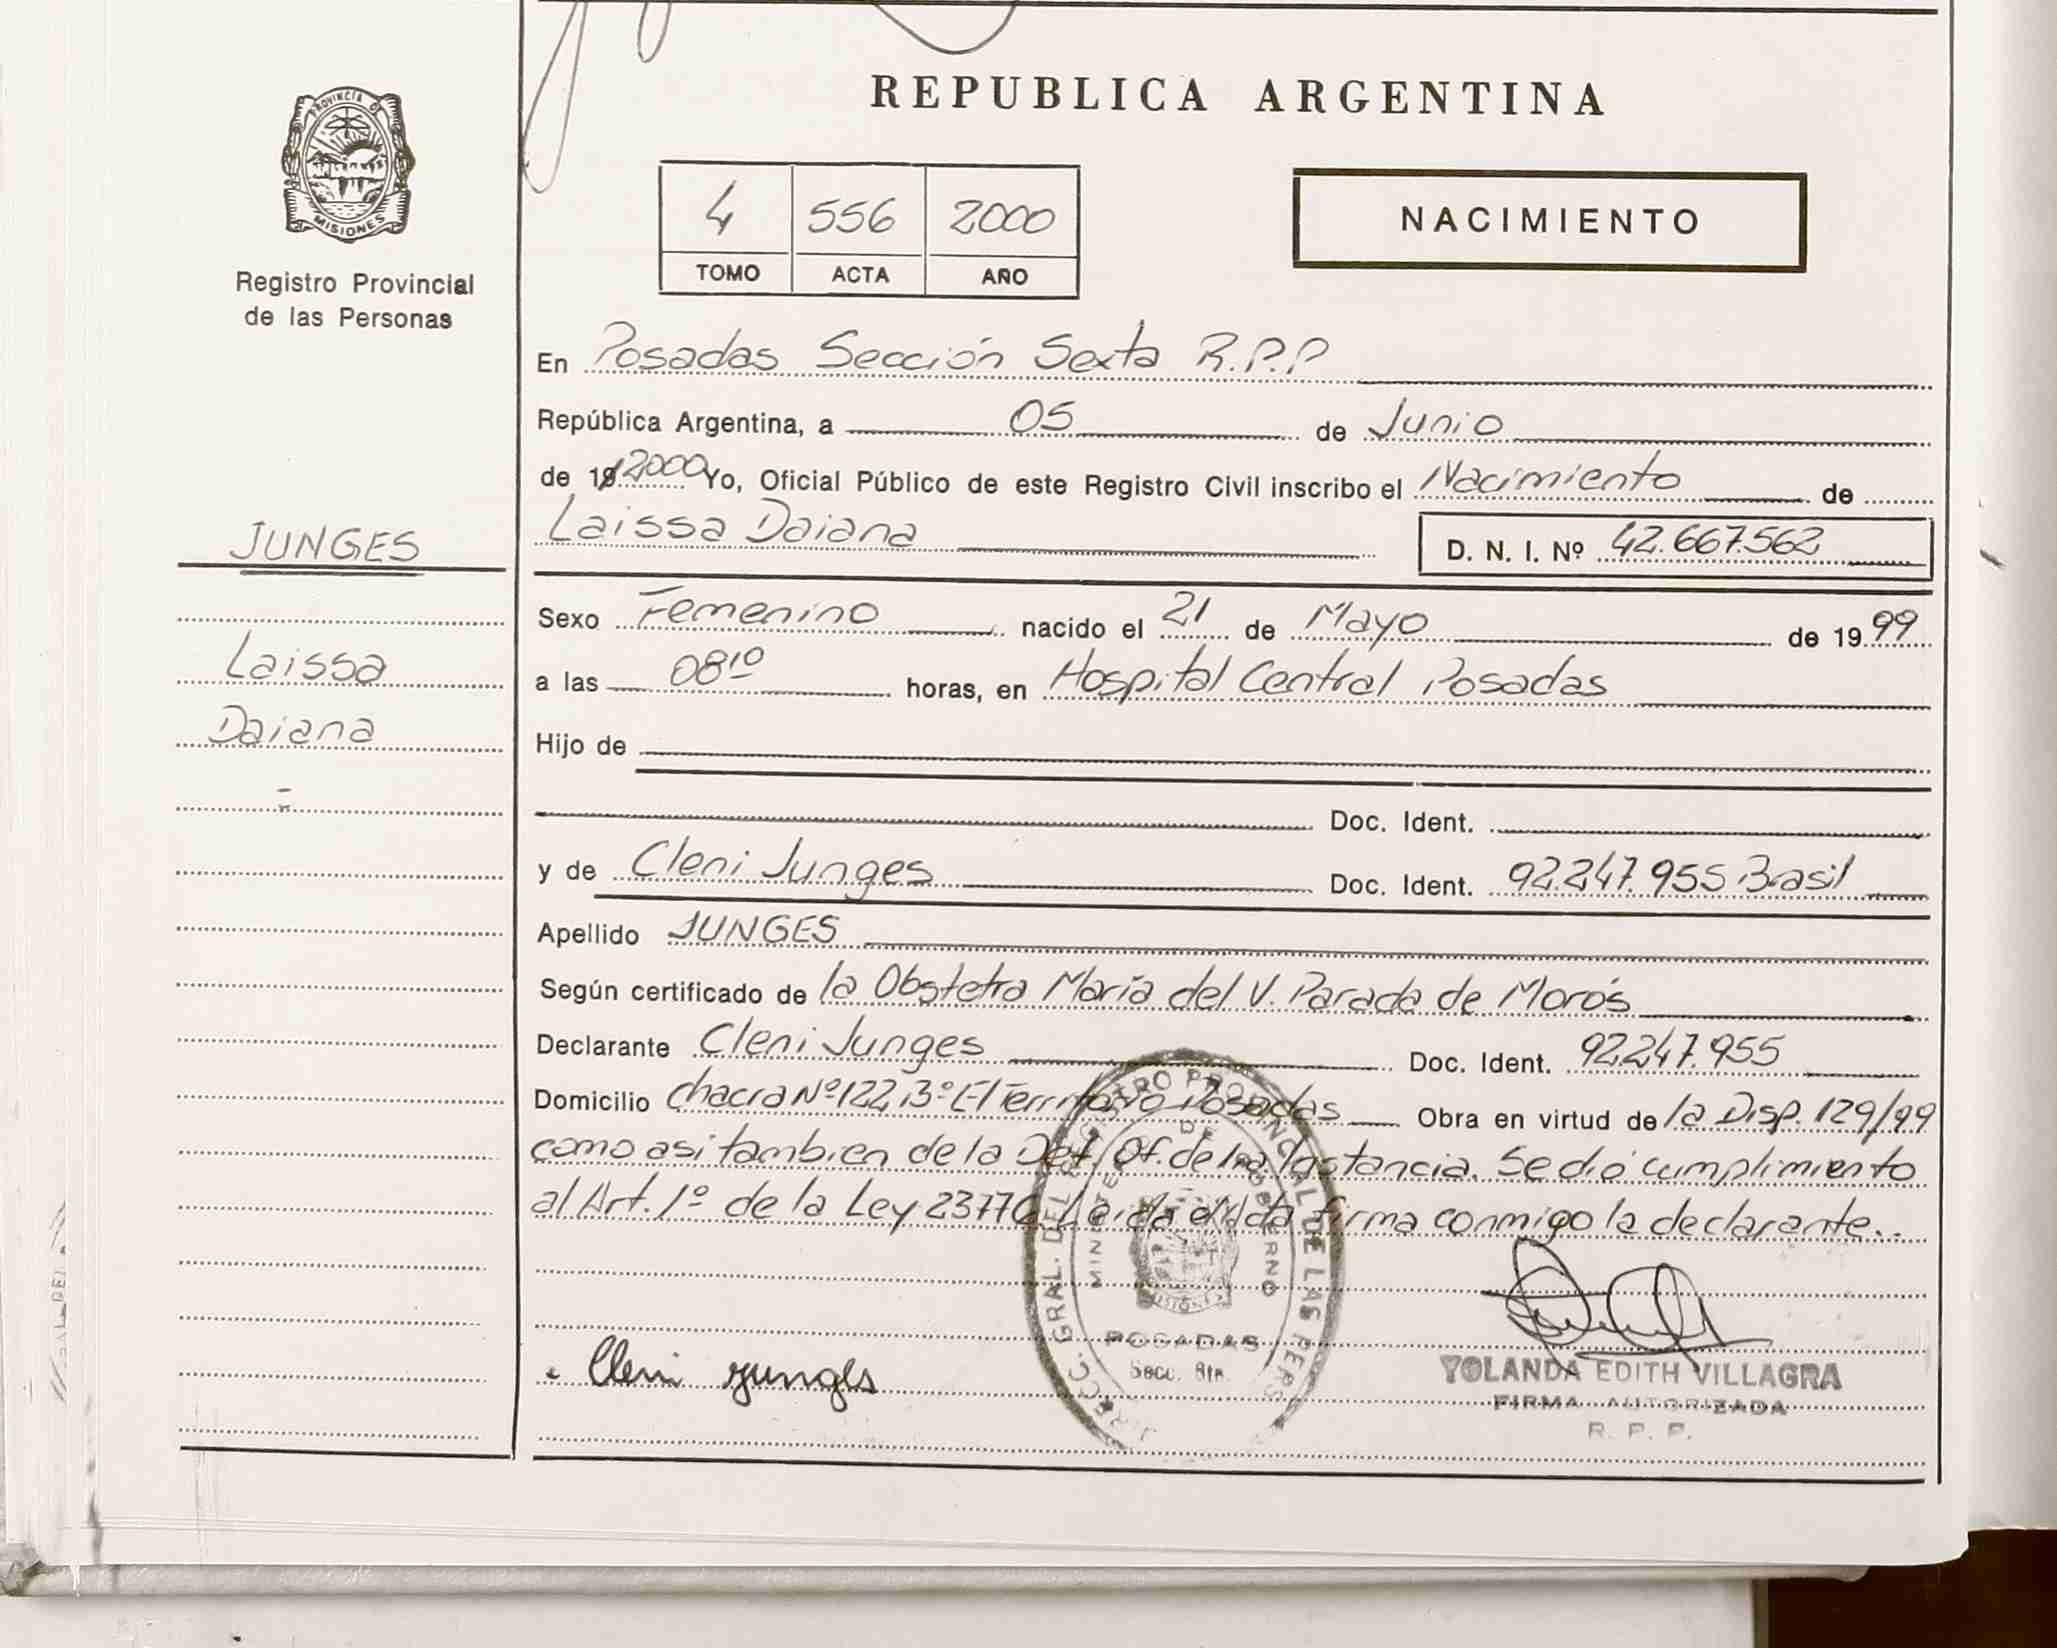 REPUBLICA ARGENTINA
PROVINCIA DE
MISIONES
Registro Provincial
de las Personas
4 556 2000
TOMO ACTA AÑO
NACIMIENTO
En Posadas Sección Sexta R.P.P
República Argentina, a 05 de Junio
de 19 2000 Yo, Oficial Público de este Registro Civil inscribo el Nacimiento de
Laissa Daiana D. N. I. Nº 42.667.562
JUNGES
Laissa
Daiana
Sexo Femenino nacido el 21 de Mayo de 1999
a las 08¹⁰ horas, en Hospital Central Posadas
Hijo de
Doc. Ident.
y de Cleni Junges Doc. Ident. 92.247.955 Brasil
Apellido JUNGES
Según certificado de la Obstetra María del V. Parada de Morós
Declarante Cleni Junges Doc. Ident. 92.247.955
Domicilio Chacra Nº 122, Bº El Territorio Posadas Obra en virtud de la Disp. 129/99
como asi tambien de la Def. Of. de Instancia. Se dió cumplimiento
al Art. 1º de la Ley 23770 Leida el Acta firma conmigo la declarante..
DIRECC. GRAL. DEL REGISTRO PROVINCIAL DE LAS PERS
MINISTERIO DE GOBIERNO
MISIONES
POSADAS
Secc. 6ta.
Cleni Junges
YOLANDA EDITH VILLAGRA
FIRMA AUTORIZADA
R. P. P.